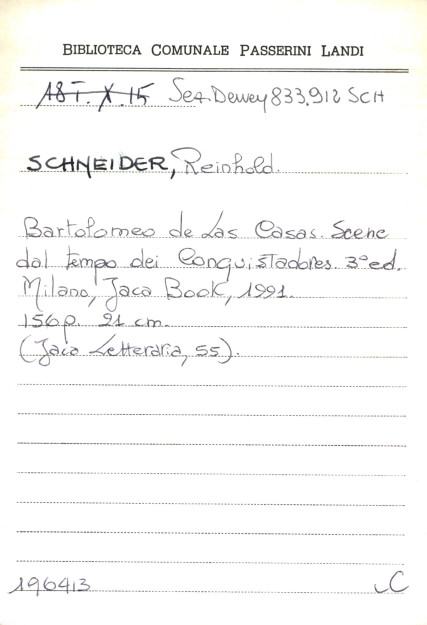 BIBLIOTECA COMUNALE PASSERINI LANDI
18 I. X. 15 Sez. Dewey 833.912 SCH
SCHNEIDER, Reinhold.
Bartolomeo de Las Casas. Scene
dal tempo dei Conquistadores. 3°ed.
Milano, Jaca Book, 1991.
156 p. 21 cm.
(Jaca Letteraria, 55).
196413 C